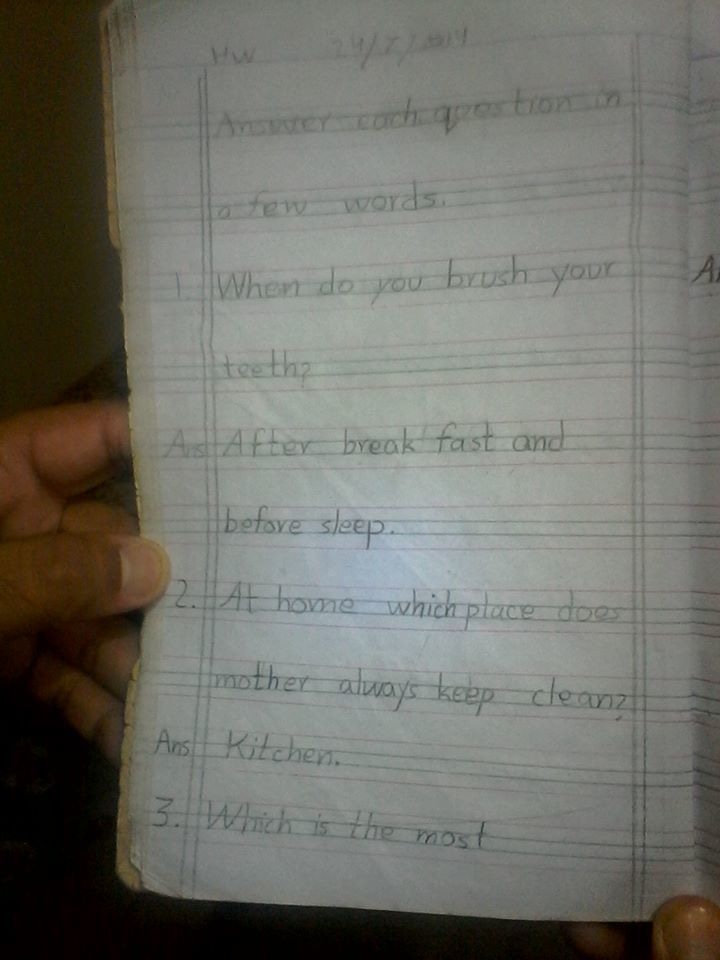 HW 24/7/2014
Answer each question in
a few words.
1. When do you brush your
teeth?
Ans After break fast and
before sleep.
2. At home which place does
mother always keep clean?
Ans Kitchen.
3. Which is the most